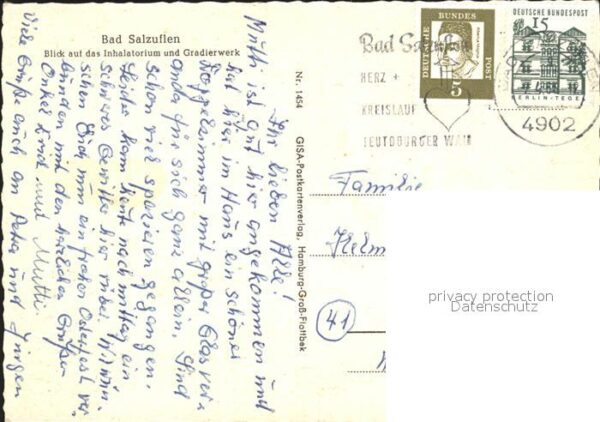 Bad Salzuflen
Blick auf das Inhalatorium und Gradierwerk
Nr. 1454 GISA-Postkartenverlag, Hamburg-Groß-Flottbek
Ihr lieben Alle!
Mutti ist gut hier angekommen und
hat hier im Haus ein schönes
Doppelzimmer mit großer Glasver-
anda für sich ganz allein. Sind
schon viel spazieren gegangen.
Heute kam heute nachmittag ein
schweres Gewitter hier rüber. Wir wün-
schen Euch nun ein frohes Osterfest ver-
bunden mit den herzlichen Grüßen
Onkel und Mutti.
Viele Grüße auch an Petra und Jürgen
Bad Salzuflen
HERZ +
KREISLAUF
TEUTOBURGER WALD
DEUTSCHE BUNDESPOST
5
15
DEUTSCHE BUNDESPOST
BERLIN-TEGEL
4902
Familie
Helm
41
privacy protection
Datenschutz